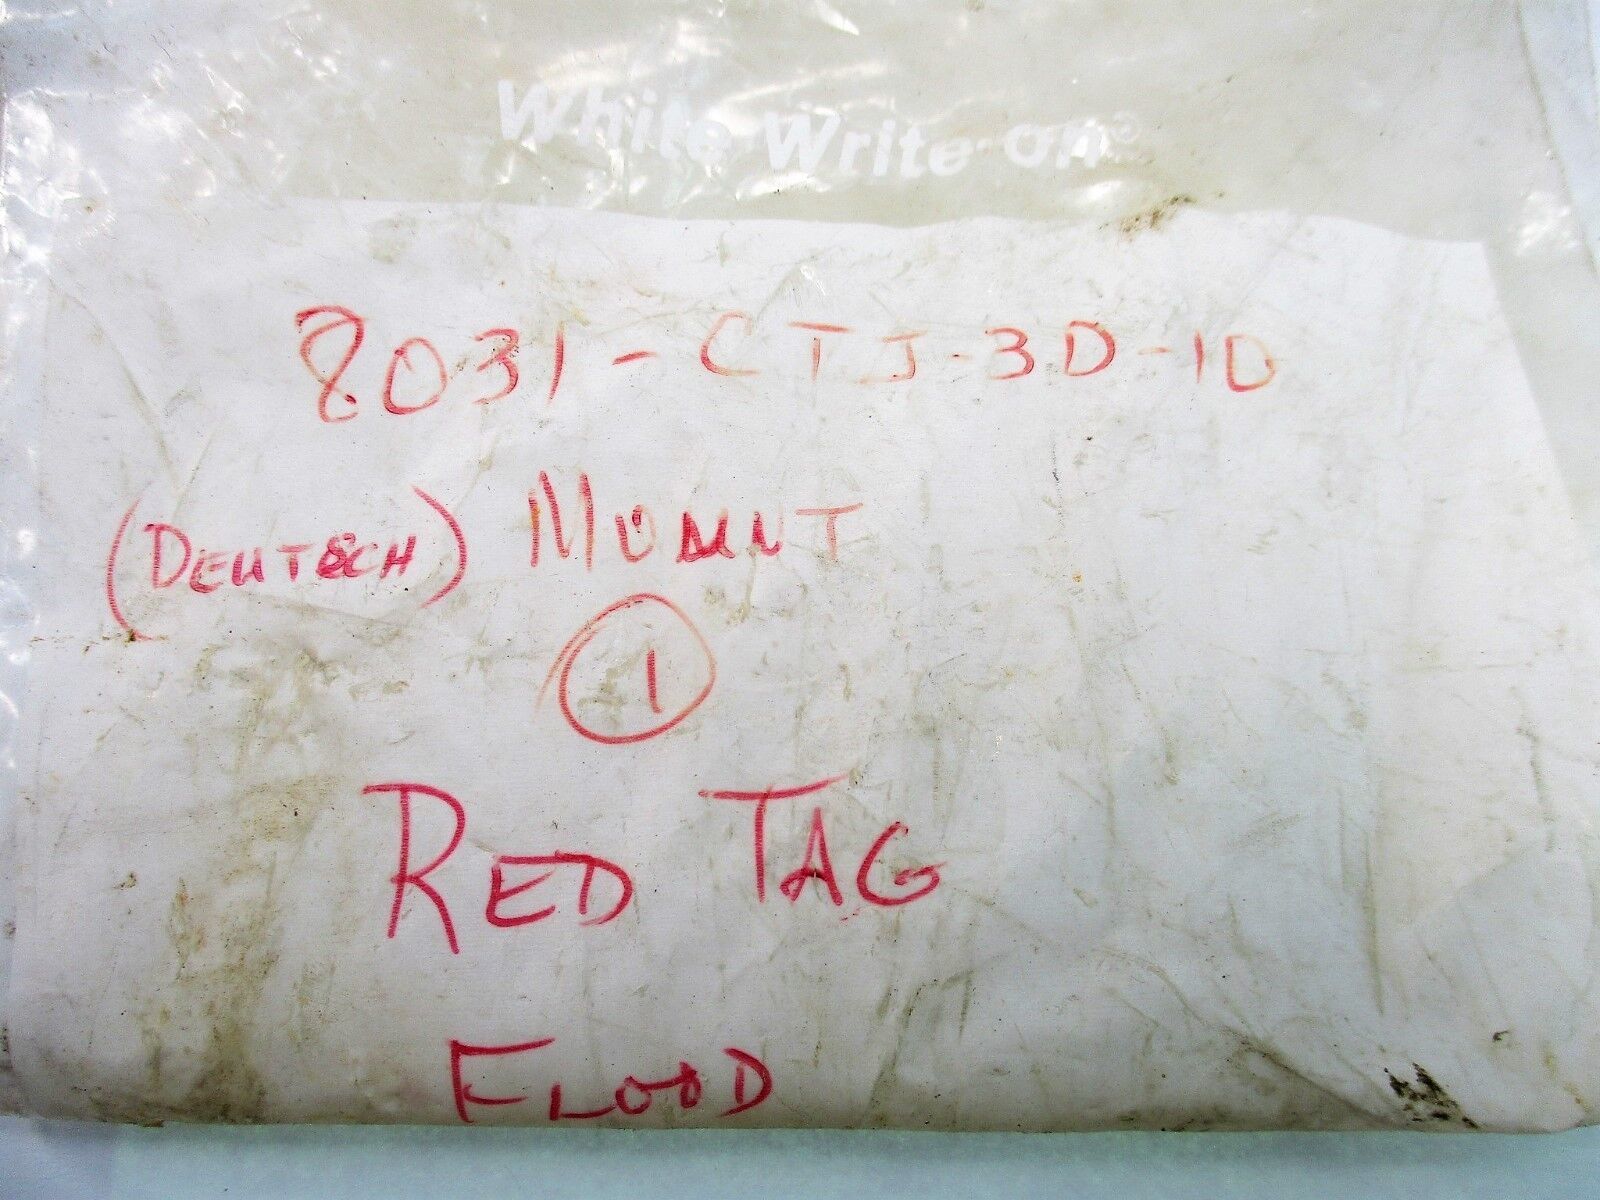 White-Write-on®
8031-CTJ-3D-10
(DEUTSCH) MOUNT
1
RED TAG
FLOOD